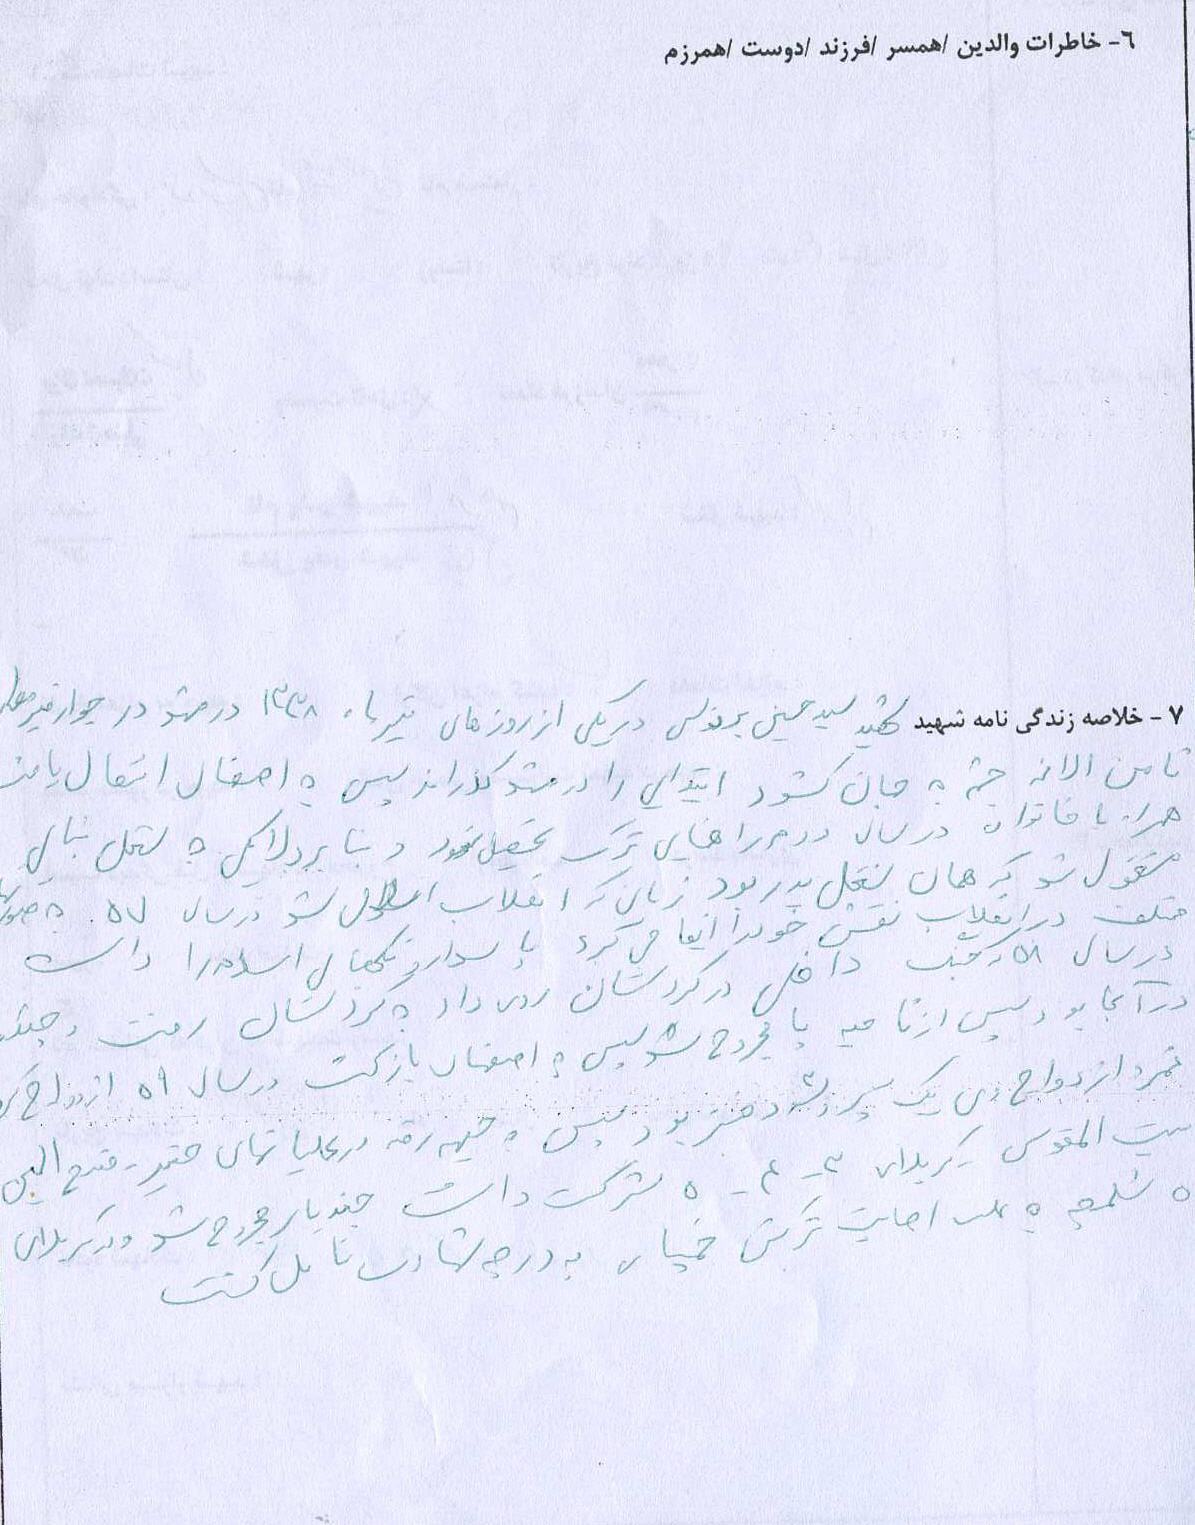 ۶- خاطرات والدین /همسر /فرزند /دوست /همرزم
۷ - خلاصه زندگی نامه شهید شهید سید حسین در یکی از روزهای تیر ماه ۱۳۳۸ در مشهد در جوار
ثامن الائمه چشم به جهان گشود ابتدایی را در مشهد گذراند سپس به اصفهان انتقال یافت
همراه با خانواده در سال دوم راهنمایی ترک تحصیل نمود و بنا به به شغل بنایی
مشغول شد که همان شغل پدر بود زمانی که انقلاب شد در سال ۵۷ به
مختلف در انقلاب نقش خود را ایفا می کرد پاسداری اسلام را داشت
در سال ۵۸ که جنگ داخلی در کردستان روی داد به کردستان رفت و
در آنجا بود سپس از ناحیه پا مجروح شد سپس به اصفهان بازگشت در سال ۵۹ ازدواج کرد
ثمره ازدواج وی یک پسر و دختر بود سپس به جبهه رفته در عملیاتهای خیبر - فتح المبین
بیت المقدس - کربلای ۳ - ۴ - ۵ شرکت داشت چند بار مجروح شد و در کربلای
۵ شلمچه به علت اصابت ترکش خمپاره به درجه شهادت نائل گشت